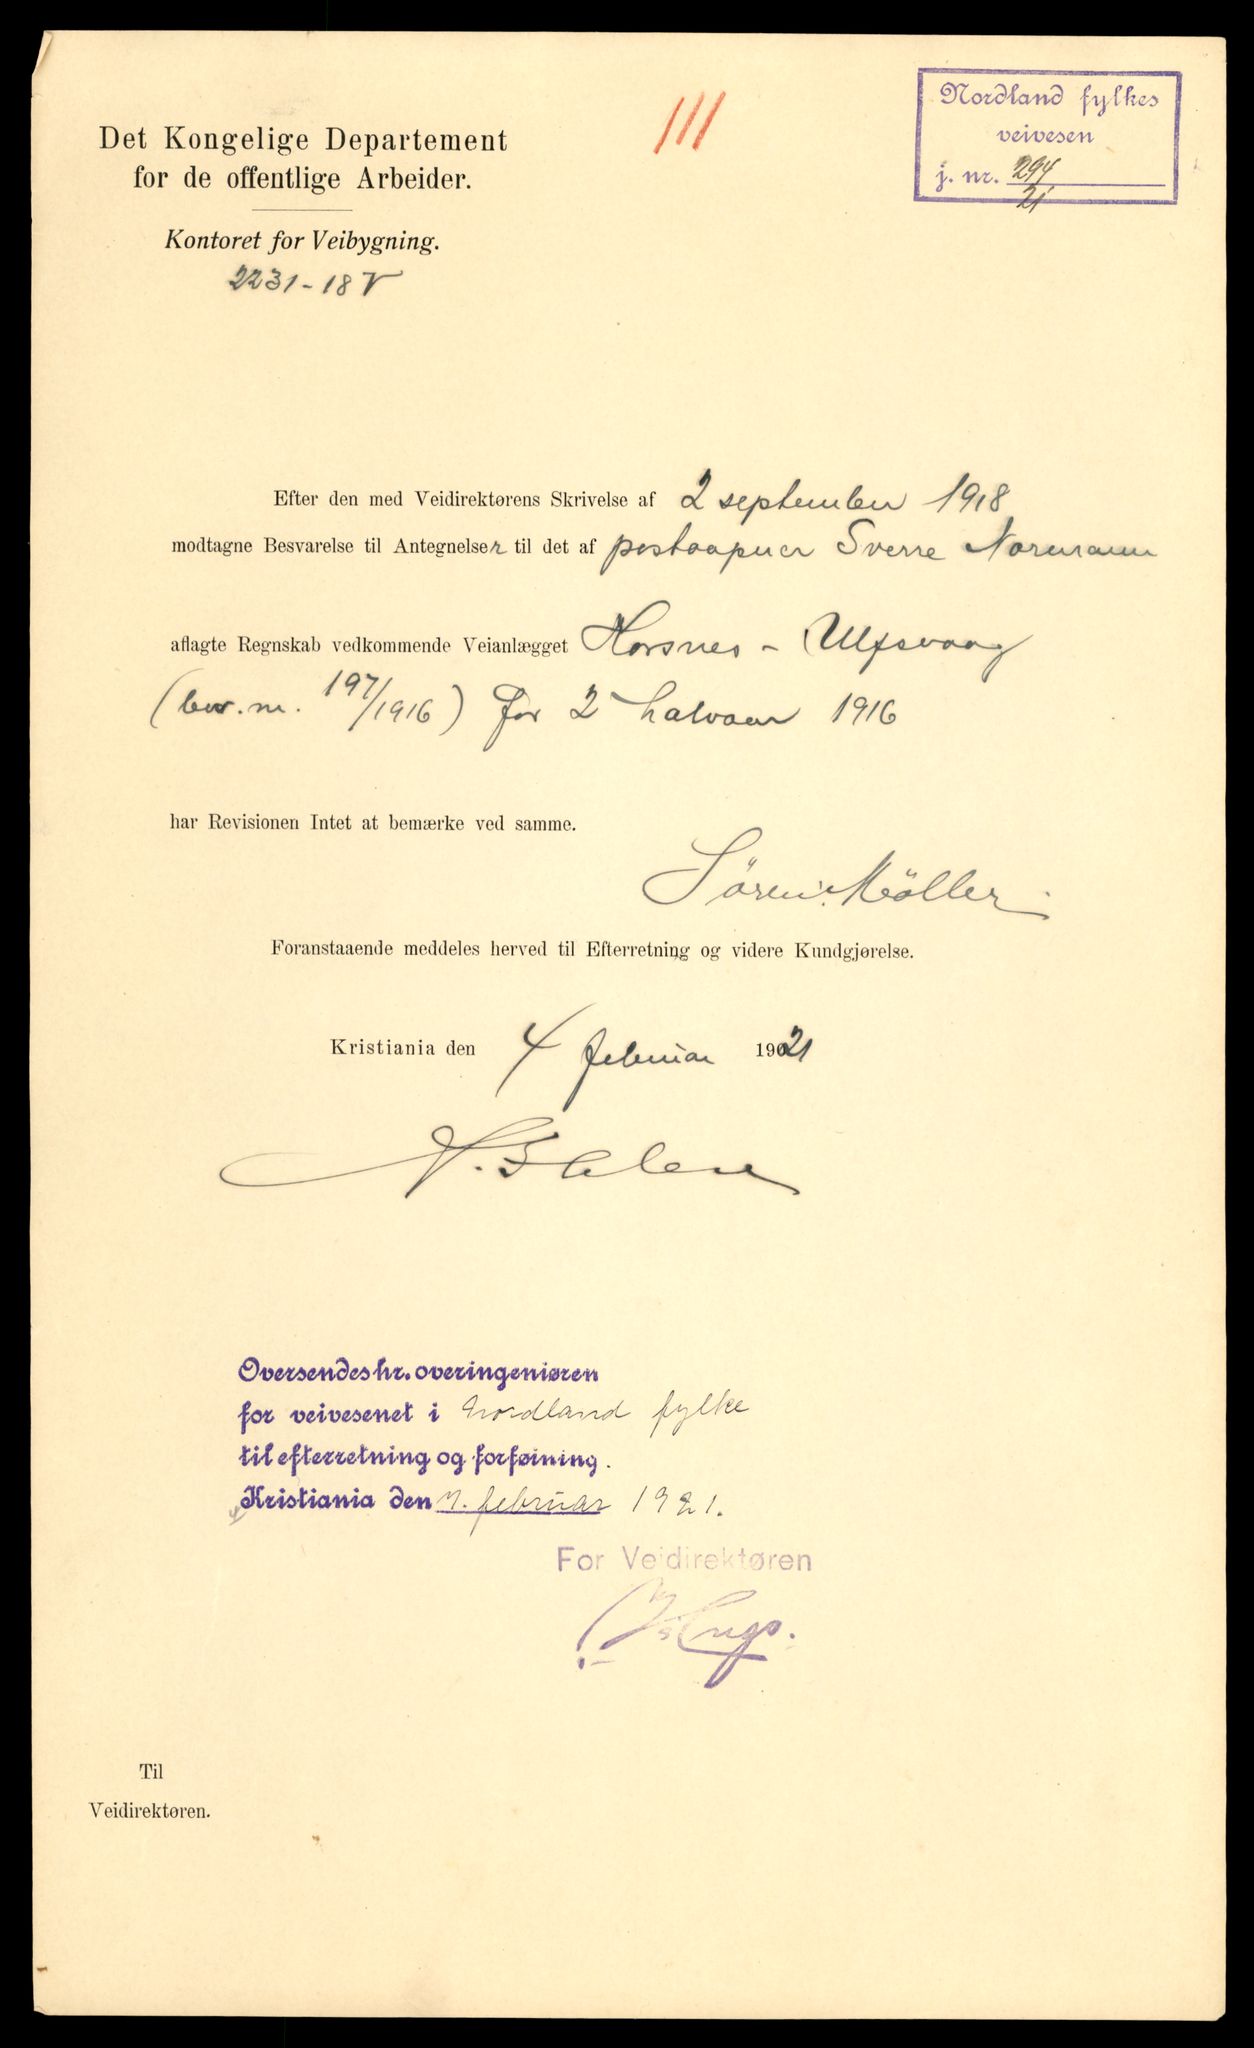 Det Kongelige Departement
for de offentlige Arbeider.
Kontoret for Veibygning.
2231-18 V
111
Nordland fylkes
veivesen
j. nr. 294
21
Efter den med Veidirektørens Skrivelse af 2 september 1918
modtagne Besvarelse til Antegnelser til det af postaapner Sverre Normann
aflagte Regnskab vedkommende Veianlægget Korsnes - Ulfsvaag
(bev. nr. 197/1916) for 2 halvaar 1916
har Revisionen Intet at bemærke ved samme.
Sören Möller
Foranstaaende meddeles herved til Efterretning og videre Kundgjørelse.
Kristiania den 4 februar 1921
N. Ihlen
Oversendes hr. overingeniøren
for veivesenet i Nordland fylke
til efterretning og forføining.
Kristiania den 7. februar 1921.
For Veidirektøren
Til
Veidirektøren.